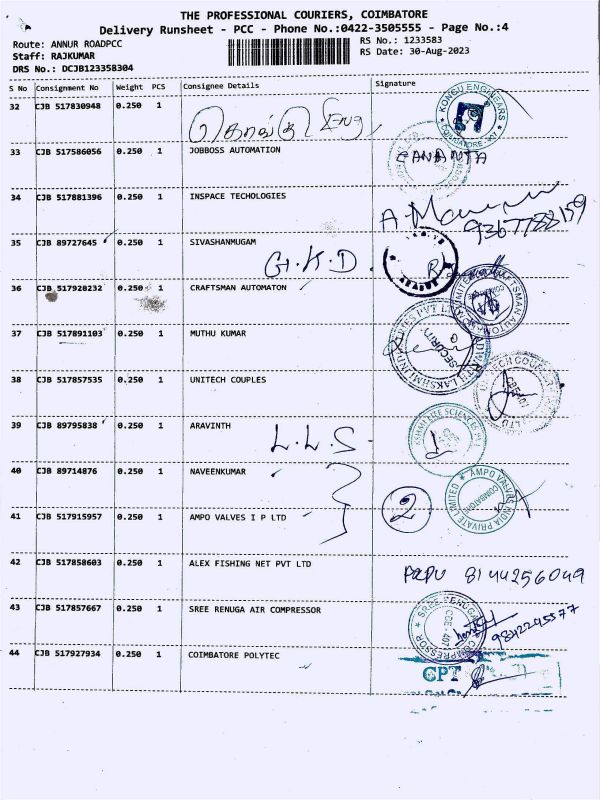 THE PROFESSIONAL COURIERS, COIMBATORE
Delivery Runsheet - PCC - Phone No.:0422-3505555 - Page No.:4
Route: ANNUR ROADPCC
Staff: RAJKUMAR
DRS No.: DCJB123358304
RS No.: 1233583
RS Date: 30-Aug-2023
S No Consignment No Weight PCS Consignee Details Signature
32 CJB 517830948 0.250 1
KONGU ENGINEARS
33 CJB 517586056 0.250 1 JOBBOSS AUTOMATION
34 CJB 517881396 0.250 1 INSPACE TECHOLOGIES
9367788159
35 CJB 89727645 0.250 1 SIVASHANMUGAM
G.K.D.
36 CJB 517928232 0.250 1 CRAFTSMAN AUTOMATON
37 CJB 517891103 0.250 1 MUTHU KUMAR
SECURITY
38 CJB 517857535 0.250 1 UNITECH COUPLES
39 CJB 89795838 0.250 1 ARAVINTH
L.L.S.
40 CJB 89714876 0.250 1 NAVEENKUMAR
2
AMPO VALVES INDIA PRIVATE LIMITED
COIMBATORE
41 CJB 517915957 0.250 1 AMPO VALVES I P LTD
42 CJB 517858603 0.250 1 ALEX FISHING NET PVT LTD
PAPU 8144256049
43 CJB 517857667 0.250 1 SREE RENUGA AIR COMPRESSOR
9842295577
44 CJB 517927934 0.250 1 COIMBATORE POLYTEC
CPT